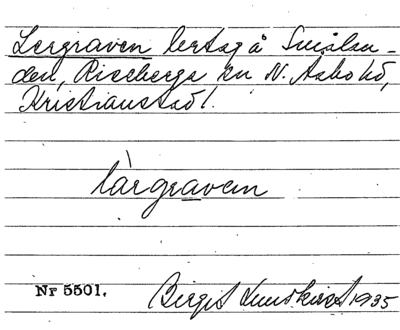 Lergraven lertag å Smålan-
den, Riseberga sn N. Åsbo hd,
Kristianstads l.
làrgraven
Nr 5501. Birgit Lundkvist 1935